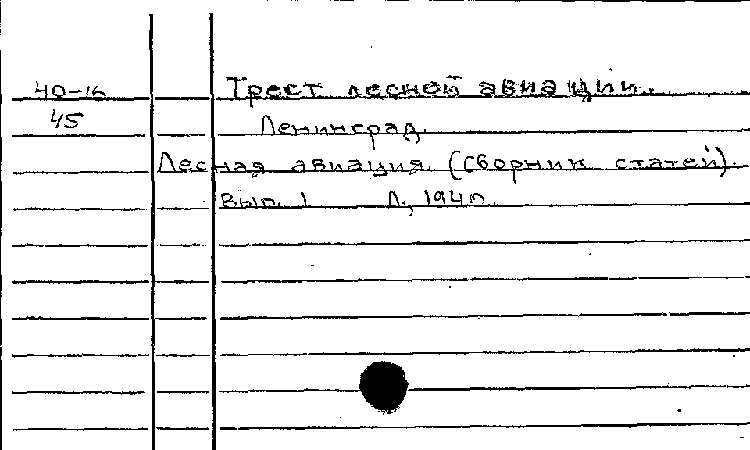 40-16 Трест лесной авиации.
45 Ленинград.
Лесная авиация. (Сборник статей).
Вып. 1 Л., 1940.